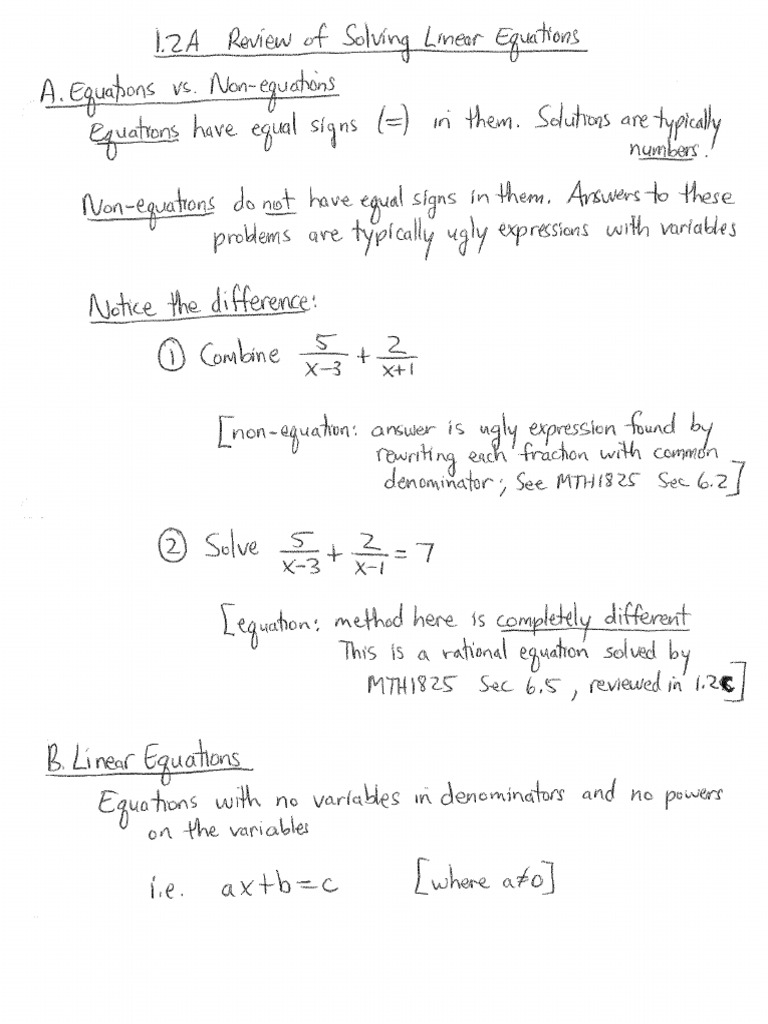 1.2A Review of Solving Linear Equations
A. Equations vs. Non-equations
Equations have equal signs (=) in them. Solutions are typically
numbers!
Non-equations do not have equal signs in them. Answers to these
problems are typically ugly expressions with variables
Notice the difference:
① Combine 5/(x-3) + 2/(x+1)
[non-equation: answer is ugly expression found by
rewriting each fraction with common
denominator; See MTH1825 Sec 6.2]
② Solve 5/(x-3) + 2/(x-1) = 7
[equation: method here is completely different
This is a rational equation solved by
MTH1825 Sec 6.5, reviewed in 1.2C]
B. Linear Equations
Equations with no variables in denominators and no powers
on the variables
i.e. ax+b=c [where a≠0]